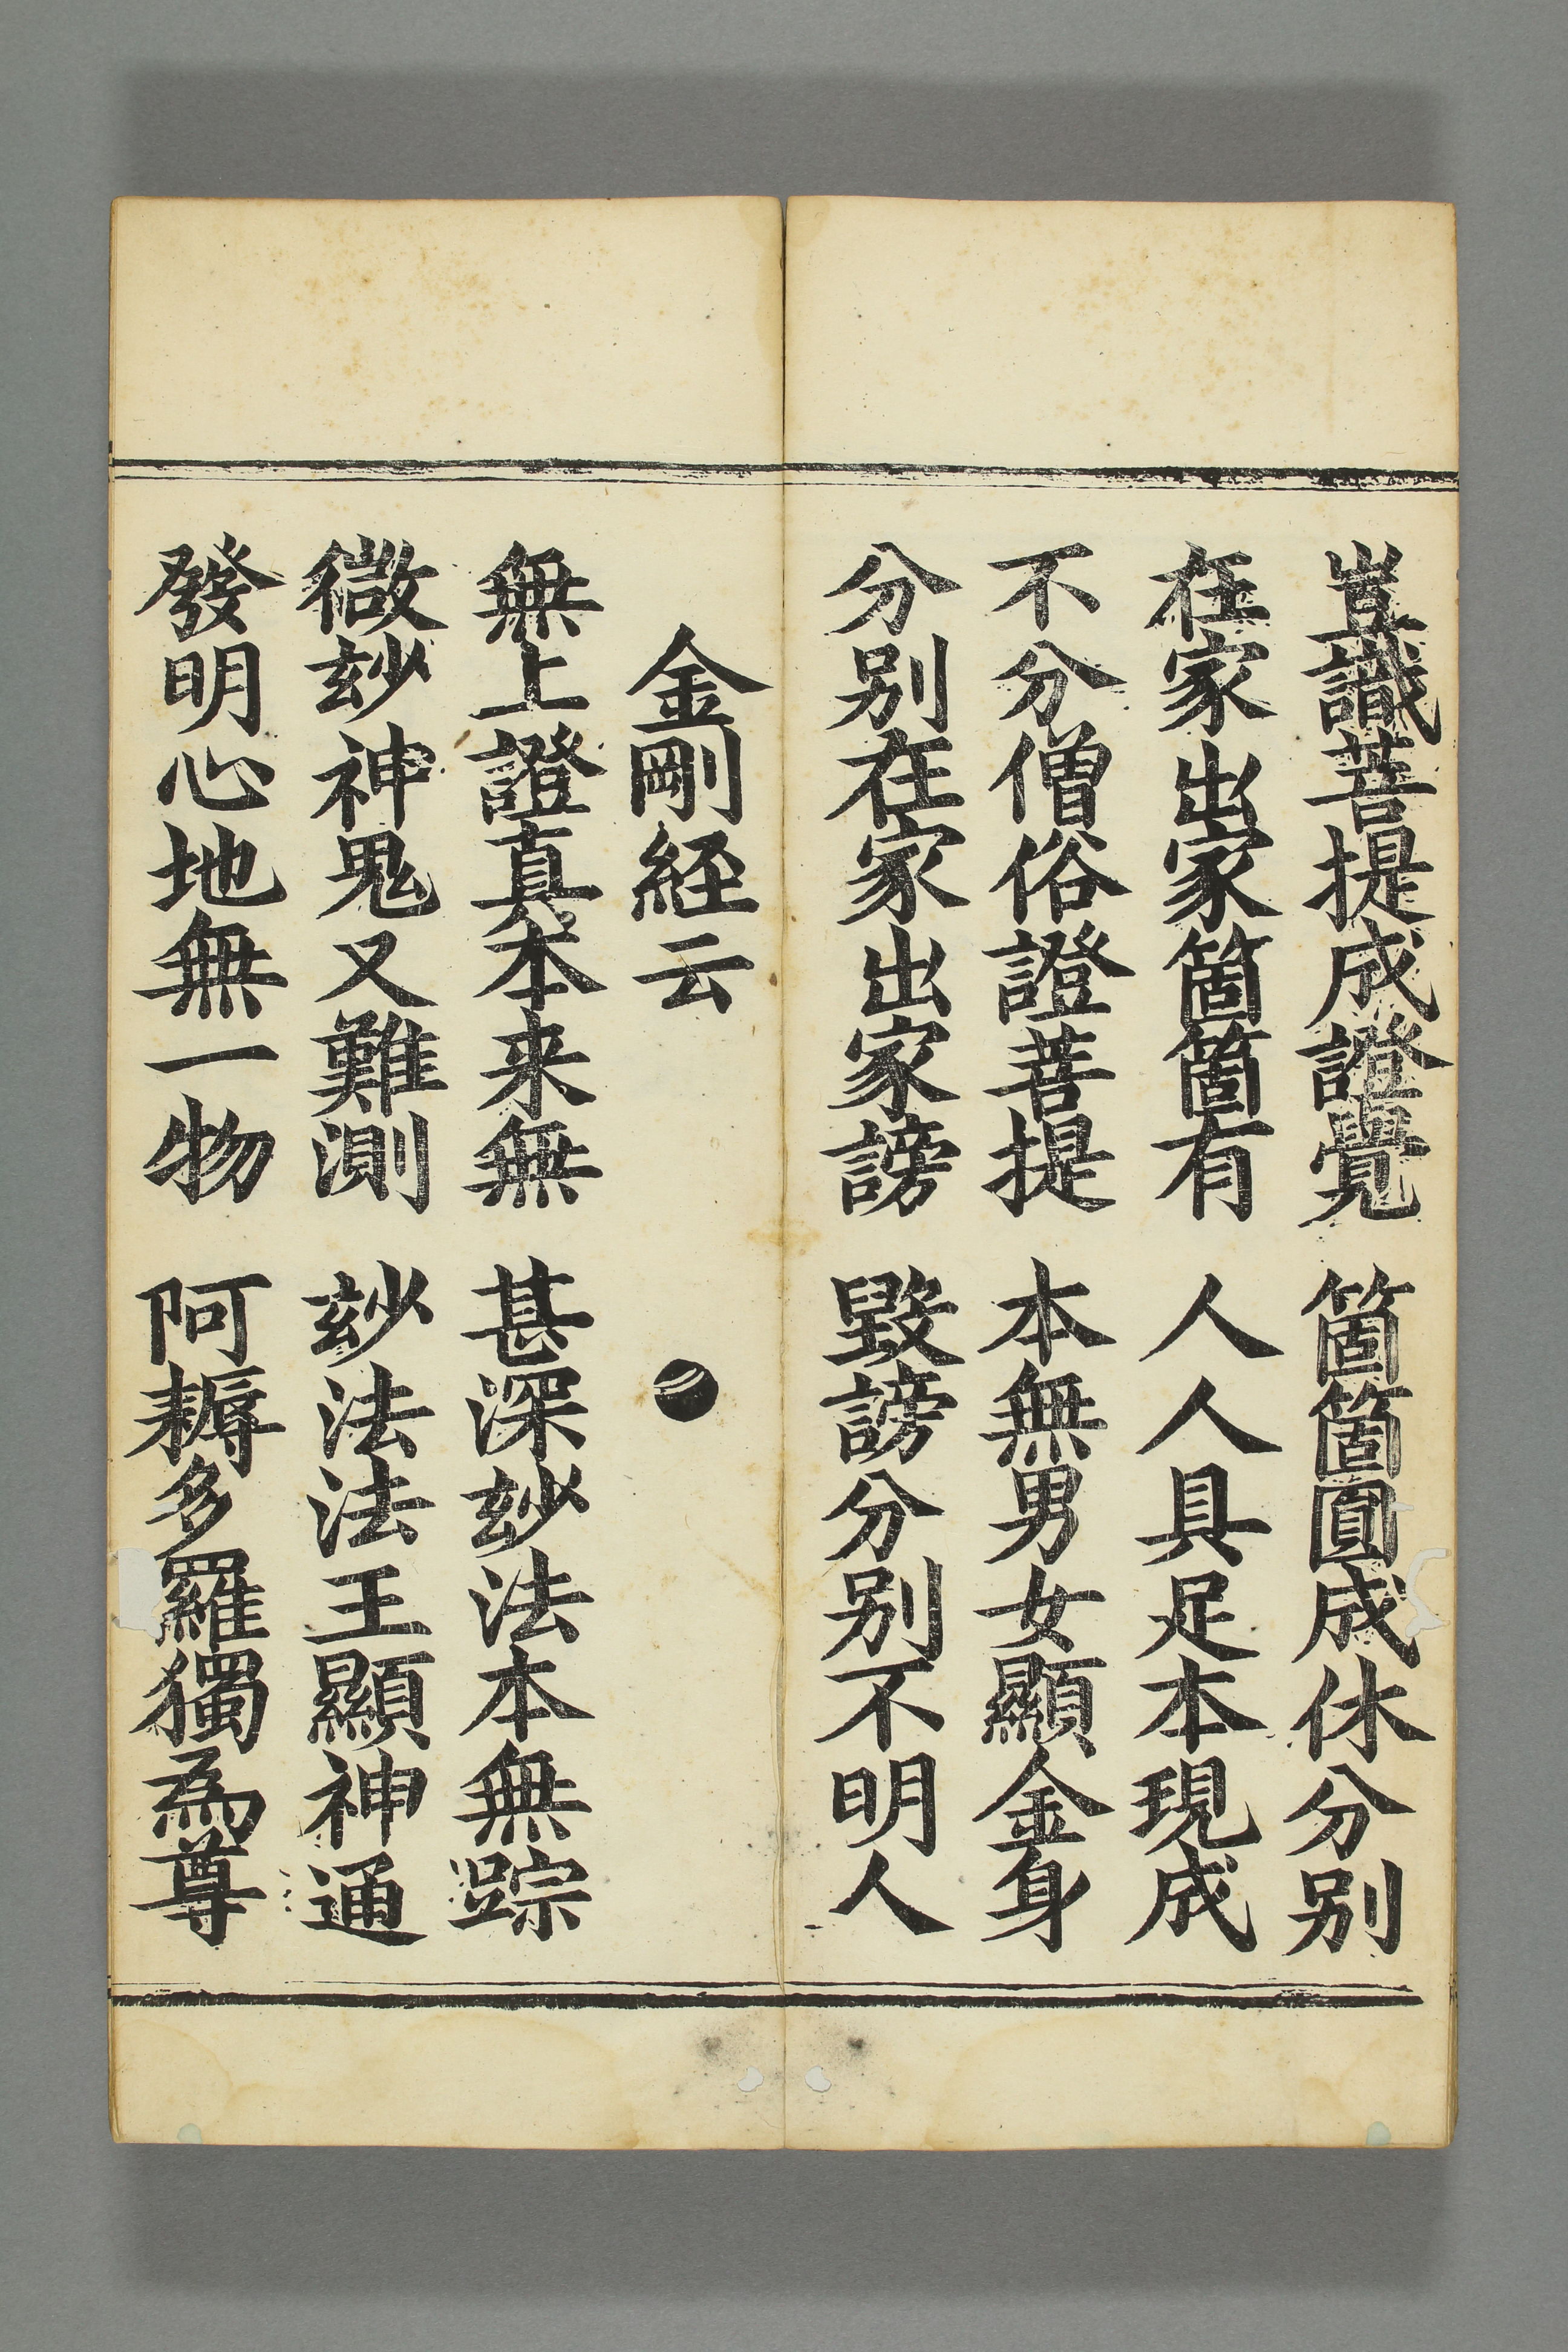 豈識菩提成證覺　箇箇圓成休分别
在家出家箇箇有　人人具足本現成
不分僧俗證菩提　本無男女顯金身
分别在家出家謗　毀謗分别不明人
金剛経云
無上證真本来無　甚深玅法本無踪
微玅神鬼又難測　玅法法王顯神通
發明心地無一物　阿耨多羅獨為尊